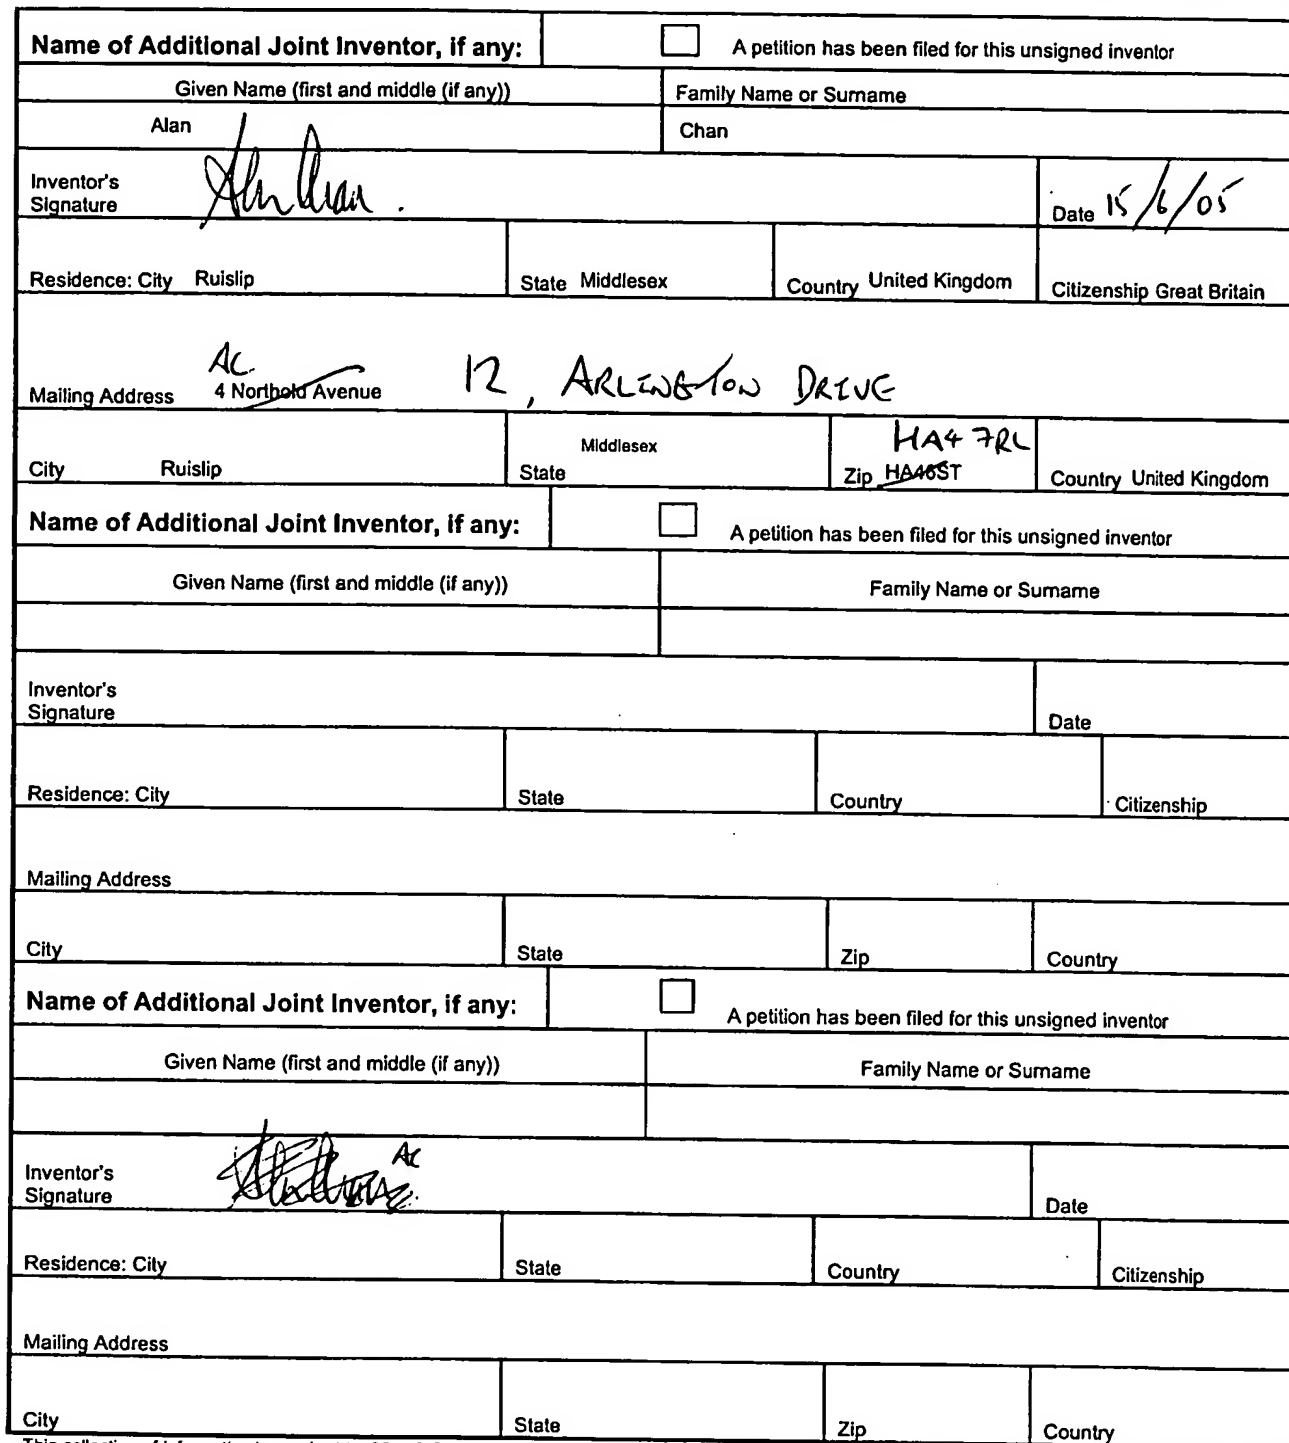 Name of Additional Joint Inventor, if any: A petition has been filed for this unsigned inventor
Given Name (first and middle (if any)) Family Name or Surname
Alan Chan
Inventor's
Signature Date 15/6/05
Residence: City Ruislip State Middlesex Country United Kingdom Citizenship Great Britain
AC
Mailing Address 4 Northold Avenue 12, ARLINGTON DRIVE
HA4 7RL
City Ruislip State Middlesex Zip HA46ST Country United Kingdom
Name of Additional Joint Inventor, if any: A petition has been filed for this unsigned inventor
Given Name (first and middle (if any)) Family Name or Surname
Inventor's
Signature Date
Residence: City State Country Citizenship
Mailing Address
City State Zip Country
Name of Additional Joint Inventor, if any: A petition has been filed for this unsigned inventor
Given Name (first and middle (if any)) Family Name or Surname
AC
Inventor's
Signature Date
Residence: City State Country Citizenship
Mailing Address
City State Zip Country